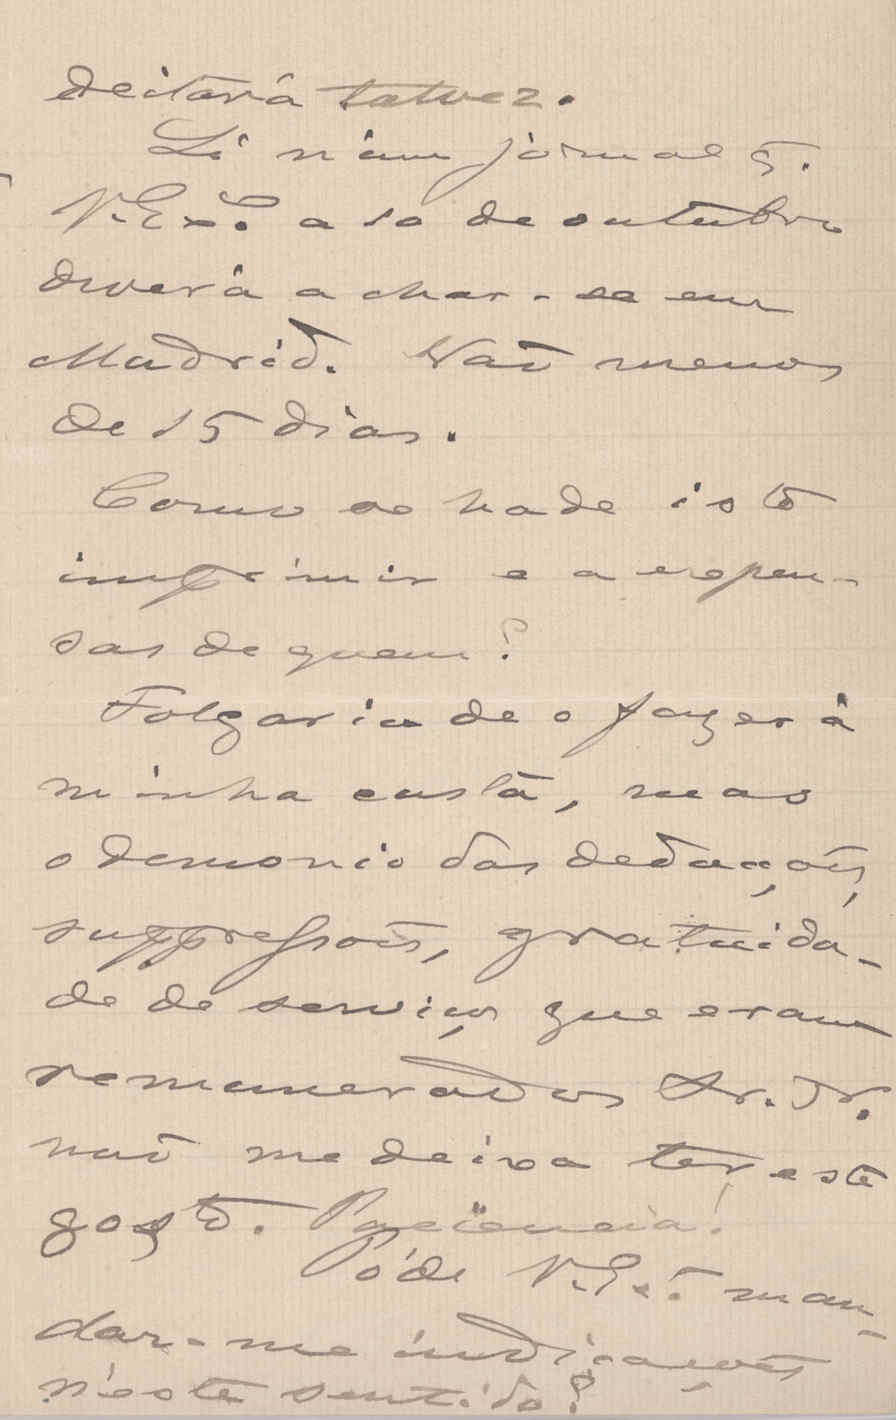 deitará talvez.
Li n'um jornal q.
V. Ex.ª a 10 de outubro
deverá achar-se em
Madrid. Naõ menos
de 15 dias.
Como se hade isto
imprimir e a expen-
sas de quem?
Folgaria de o fazer à
minha custa, mas
o demonio das deducções,
suppressoẽs, gratuida-
de de serviços que eram
remunerados
naõ me deixa ter este
gosto. Paciencia!
Póde V. Ex.ª man-
dar-me indicações
n'este sentido?